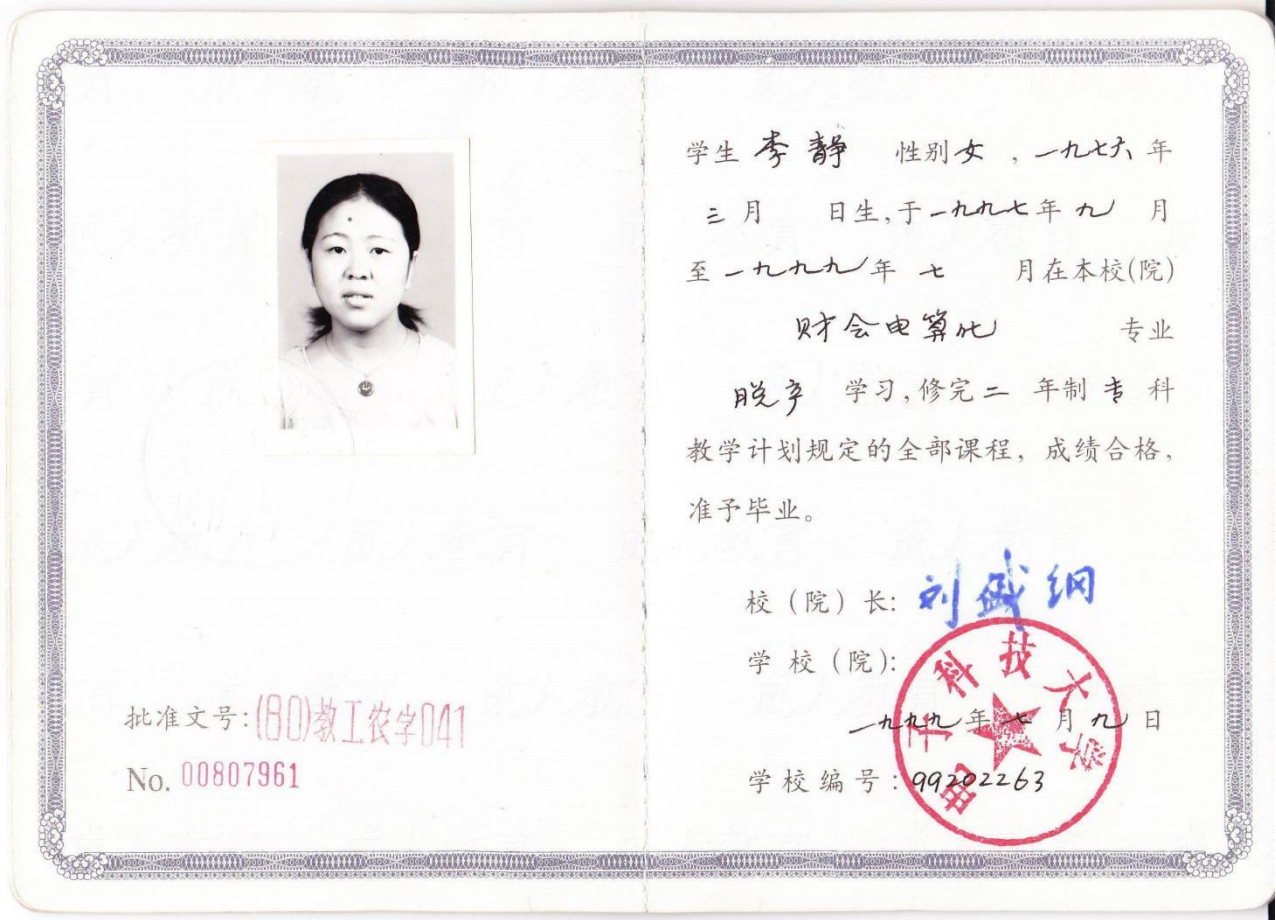 批准文号:(80)教工农字041
No. 00807961
学生 李静 性别女,一九七六年
三月 日生,于一九九七年九月
至一九九九年七 月在本校(院)
财会电算化 专业
脱产 学习,修完二 年制 专 科
教学计划规定的全部课程,成绩合格,
准予毕业。
校(院)长: 刘盛纲
学校(院):
电子科技大学
一九九九年七月九日
学校编号:99202263